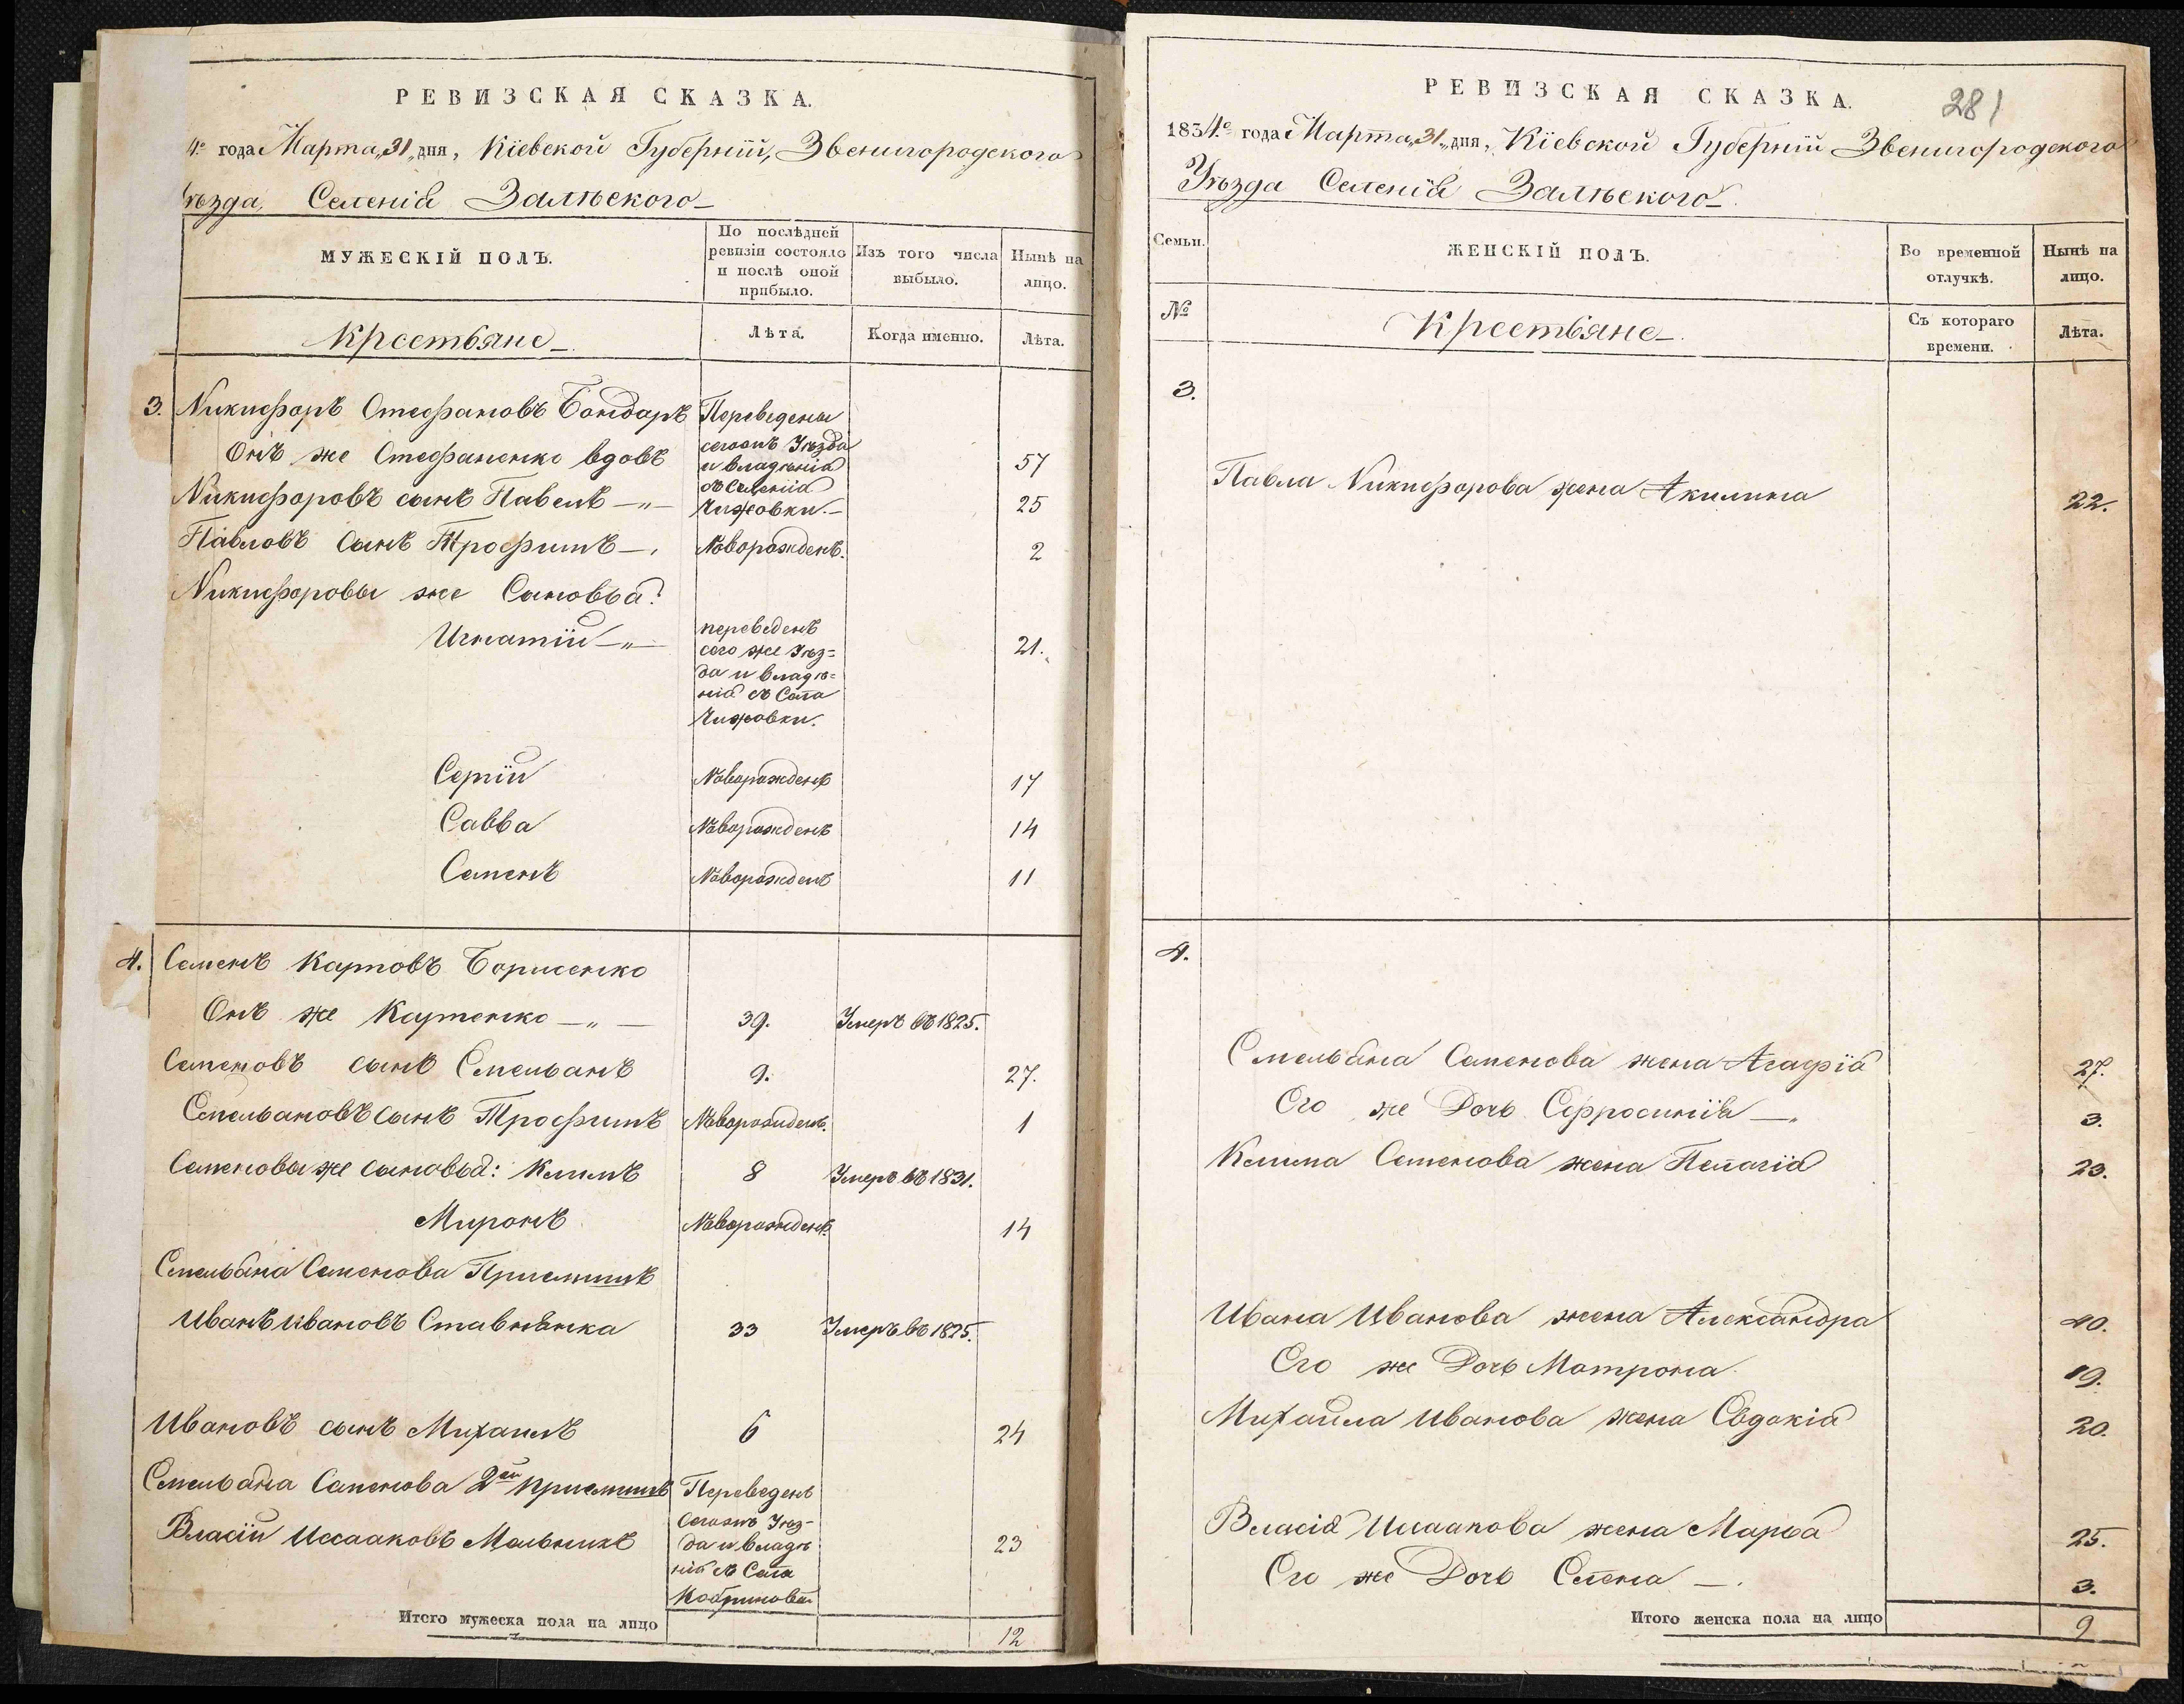 РЕВИЗСКАЯ СКАЗКА.
4го года Марта „31„ дня, Кіевской Губерніи, Звенигородского
ѣзда Селенія Залѣского
МУЖЕСКІЙ ПОЛЪ.
По послѣдней ревизіи состояло и послѣ оной прибыло.
Изъ того числа выбыло.
Нынѣ на лицо.
Крестьяне
Лѣта.
Когда именно.
Лѣта.
3. Никифоръ Стефановъ Бондарь Переведены
Онъ же Стефаненко вдовъ сегожъ Уѣзда и владѣнія 57
Никифоровъ сынъ Павелъ —„— съ Селенія Чижовки.— 25
Павловъ сынъ Трофимъ — Новорожденъ. 2
Никифоровы же Сыновья:
Игнатій —„— переведенъ 21.
сего же Уѣз=
да и владѣ=
нія съ Села
Чижовки.
Сергій Новорожденъ 17
Савва Новорожденъ 14
Семенъ Новорожденъ 11
4. Семенъ Карповъ Борисенко
Онъ же Карпенко —„— 39. Умеръ въ 1825.
Семеновъ сынъ Емельянъ 9. 27.
Емельяновъ сынъ Трофимъ Новорожденъ. 1
Семеновы же сыновья: Климъ 8 Умеръ въ 1831.
Миронъ Новорожденъ. 14
Емельяна Семенова Приемышъ
Иванъ Ивановъ Ставнянка 33 Умеръ въ 1825.
Ивановъ сынъ Михаилъ 6 24
Емельяна Семенова 2й приемышъ Переведенъ
Власій Иссааковъ Мельникъ сегожъ Уѣз- 23
да и владѣ
нія съ Села
Кобринова
Итого мужеска пола на лицо 12
РЕВИЗСКАЯ СКАЗКА.
281
1834го года Марта „31„ дня, Кіевской Губерніи Звенигородского
Уѣзда Селенія Залѣского
Семьи.
ЖЕНСКІЙ ПОЛЪ.
Во временной отлучкѣ.
Нынѣ на лицо.
№
Крестьяне
Съ котораго времени.
Лѣта.
3.
Павла Никифорова жена Акилина 22.
4.
Емельяна Семенова жена Агафія 27.
Его же Дочь Ефросинія — 3.
Клима Семенова жена Пелагія 23.
Ивана Иванова жена Александра 40.
Его же Дочь Матрона 19.
Михаила Иванова жена Евдокія 20.
Власія Иссаакова жена Марья 25.
Его же Дочь Елена — 3.
Итого женска пола на лицо 9